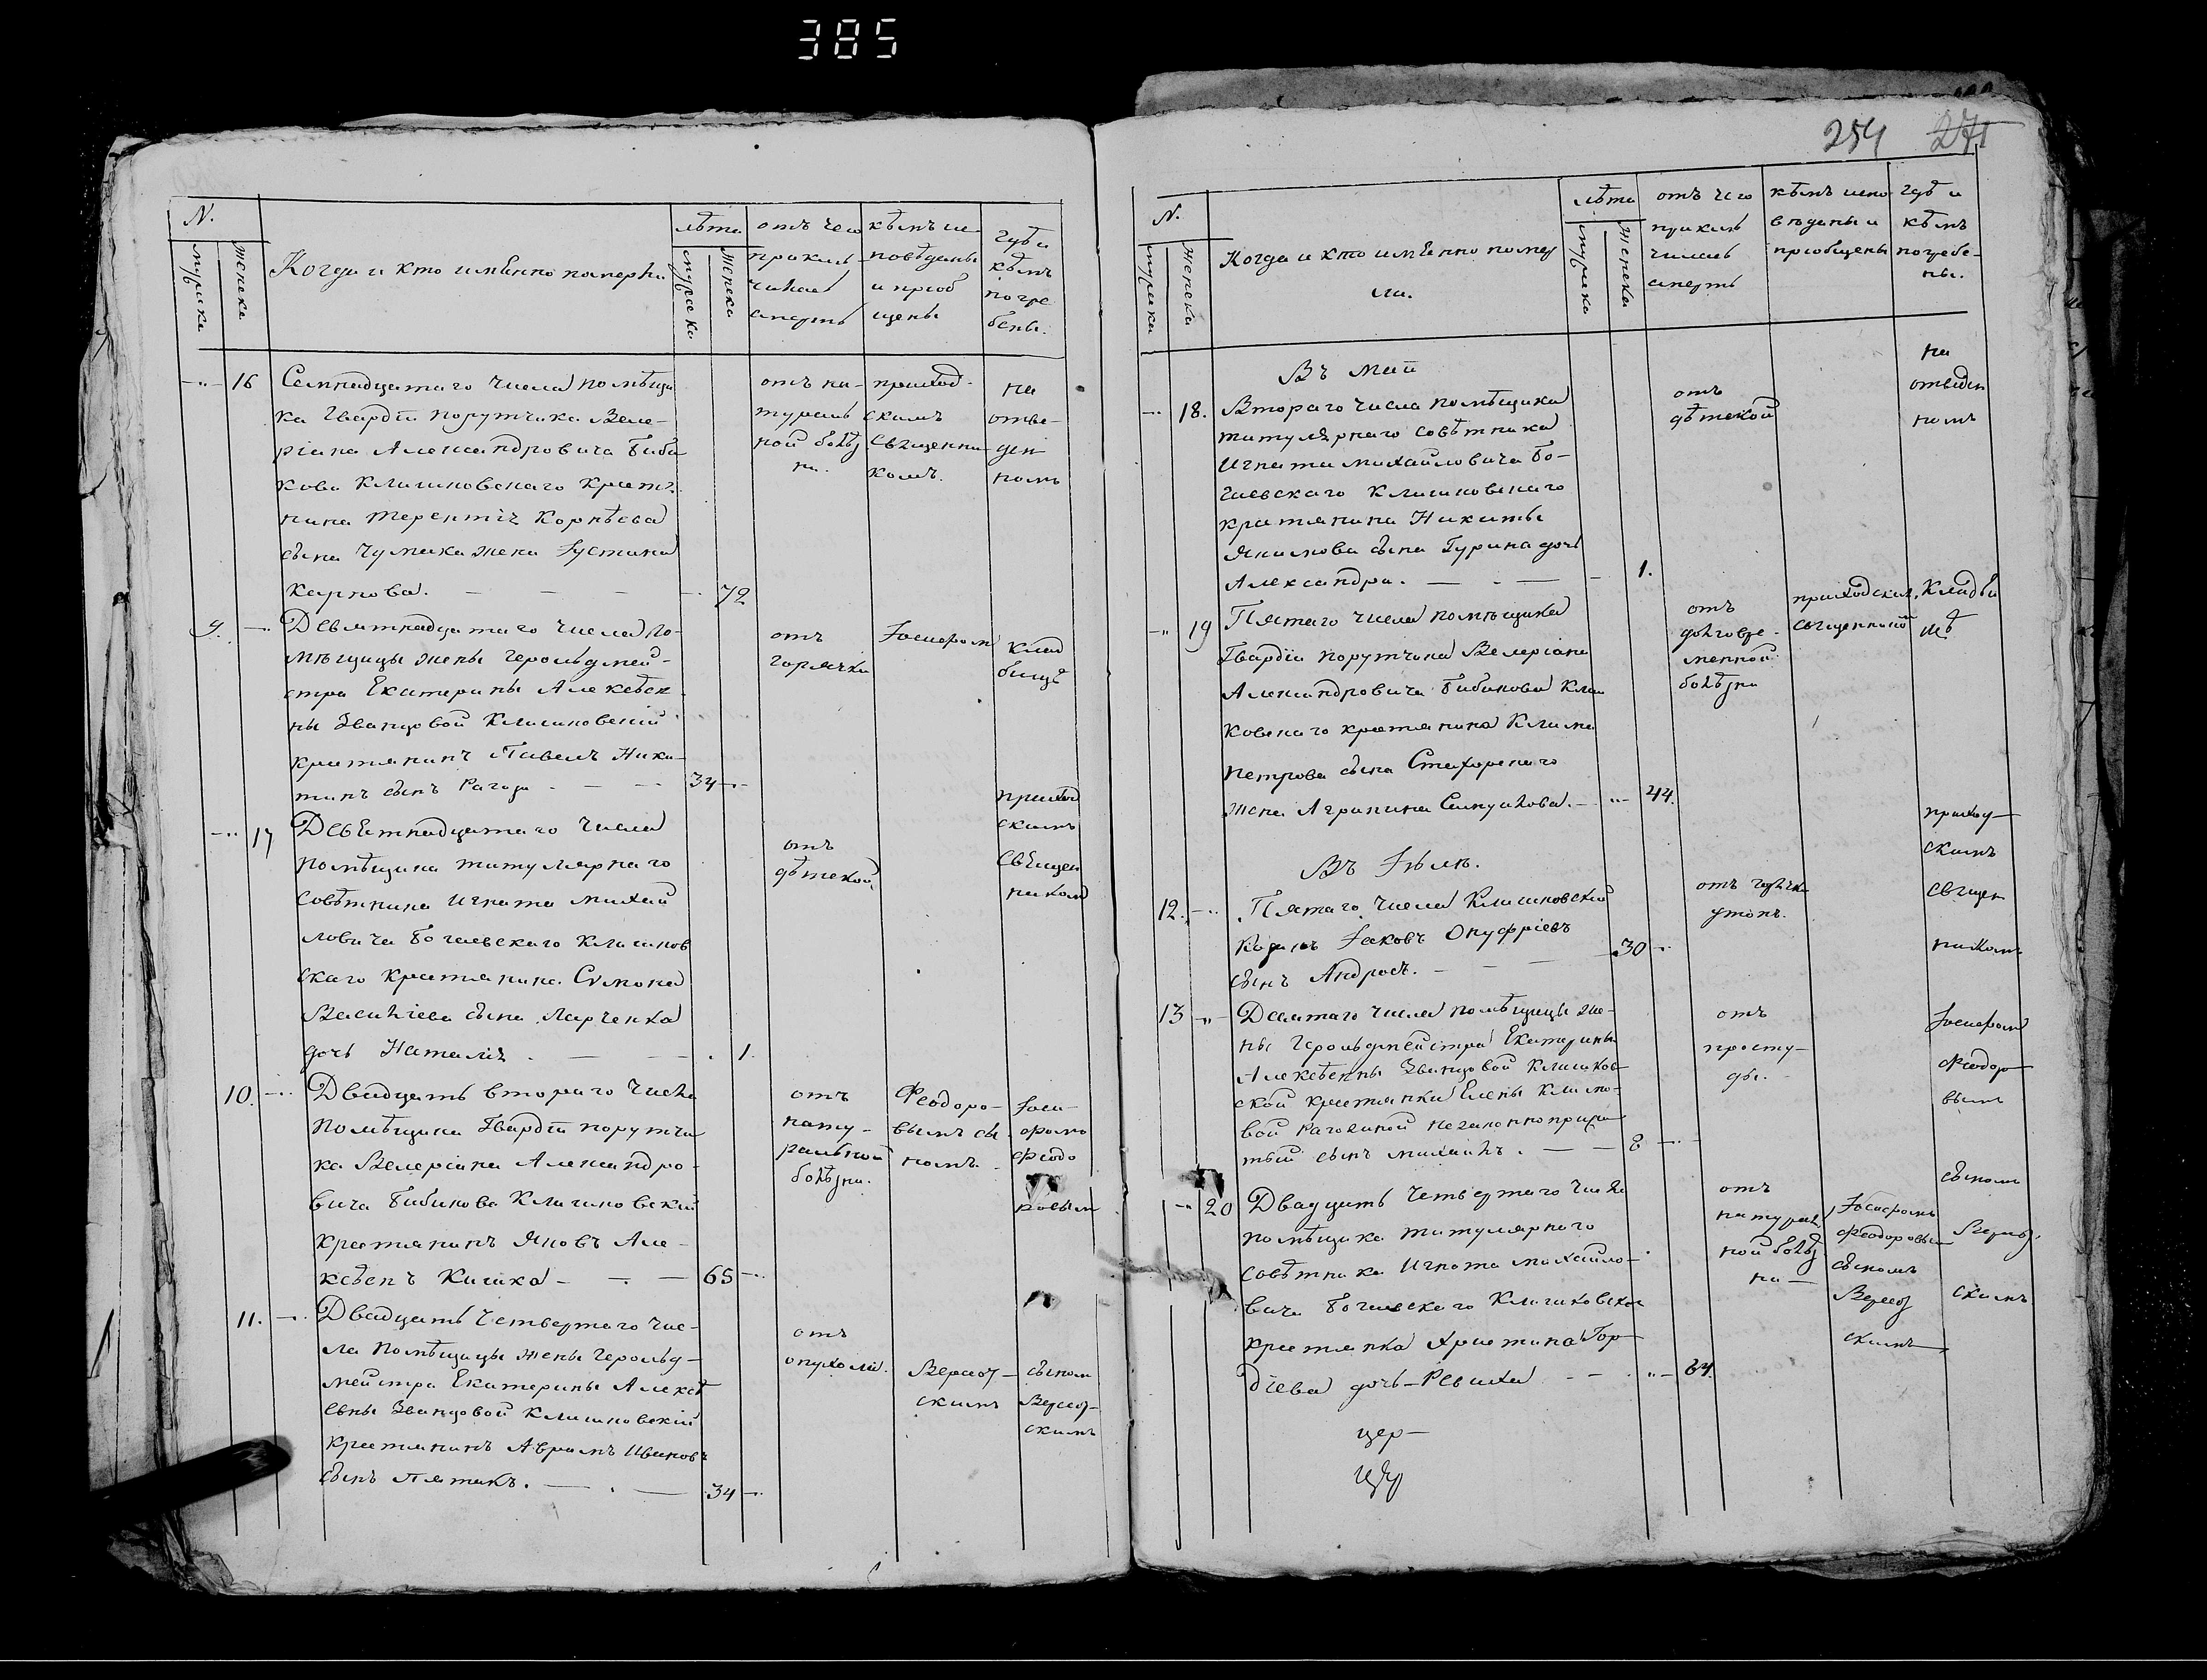 385
N.
мужска
женска
Когда и кто имѣнно померли
лѣта
мужска
женска
отъ чего
приклю-
чилась
смерть
кѣмъ ис-
повѣданы
и приоб
щены
гдѣ и
кѣмъ
погре
бены.
16
Семнадцатаго числа помѣщи
ка Гвардіи порутчика Веле-
ріана Александровича Биби
кова Клишковскаго крестя
нина Терентія Корнѣева
сына Чумака жена Іустина
Карпова. 72
отъ на-
тураль
ной болѣз
ни.
приход-
скимъ
священни-
комъ.
на
отве-
ден
номъ
9.
Девятнадцатаго числа по-
мѣщицы жены герольдмей-
стра Екатерины Алексѣев
ны Званцовой Клишковскій
крестянинъ Павелъ Ники-
тинъ сынъ Рагоза 34
отъ
горячки
Іосифом
клад
бищѣ
17
Девятнадцатаго числа
помѣщика титулярнаго
совѣтника Игната михай
ловича Богаевскаго Клишков
скаго крестянина Симона
Василіева сына Марченка
дочь Наталія 1.
отъ
дѣтской
приход
скимъ
священ
никомъ
10.
Двадцать втораго числа
Помѣщика Гвардіи порутчи
ка Велеріана Александро-
вича Бибикова Клишковский
крестянинъ Яковъ Але-
ксѣевъ Кишка 65
отъ
нату-
ральной
болѣзни.
Феодоро-
вымъ сы-
номъ
Іоси-
фомъ
Феодо
ровым
11.
Двадцать четвертаго чис-
ла Помѣщицы жены герольд-
мейстра Екатерины Алексѣ
евны Званцовой Клишковскій
крестянинъ Аврамъ Ивановъ
сынъ Пятакъ. 34
отъ
опухоли.
скимъ
сыном
скимъ
254 271
N.
мужска
женска
Когда и кто имѣнно помер
ли.
лѣта
мужска
женска
отъ чего
приклю
чилась
смерть
кѣмъ испо
вѣданы и
приобщены
гдѣ и
кѣмъ
погребе-
ны.
Въ Маіи
18.
Втораго числа помѣщика
титулярнаго совѣтника
Игната михайловича Бо-
гаевскаго Клишковскаго
крестянина Никиты
Якимова сына Гурина дочь
Александра. 1.
отъ
дѣтской
на
отведен
номъ
19
Пятаго числа помѣщика
Гвардіи порутчика Велеріана
Александровича Бибикова Клиш
ковскаго крестянина Клима
Петрова сына
жена Агрипина Самуилова. 44.
отъ
долговре-
менной
болѣзни
приходским
священникомъ
кладби
щѣ
Въ Іюлѣ.
12.
Пятаго числа Клишковский
Козакъ Іаковъ Онуфріевъ
сынъ Андросъ. 30
отъ
утопъ.
приход-
скимъ
священ
никомъ
13
Десятаго числа помѣщицы же-
ны герольдмейстра Екатерины
Алексѣевны Званцовой Клишков-
ской крестянки Елены Климо-
вой Рагозиной незаконноприжи
тый сынъ Михаилъ. 8
отъ
просту-
ды.
Іосифом
Феодор-
вым
20
Двадцать четвертаго числа
помѣщика титулярнаго
совѣтника Игната михайло-
вича Богаевскаго Клишковская
крестянка Христина Гор-
діева дочь Ревиха 64.
отъ
натурал
ной болѣз
ни
Іосифомъ
Феодоровым
сыномъ
скимъ
сыномъ
скимъ